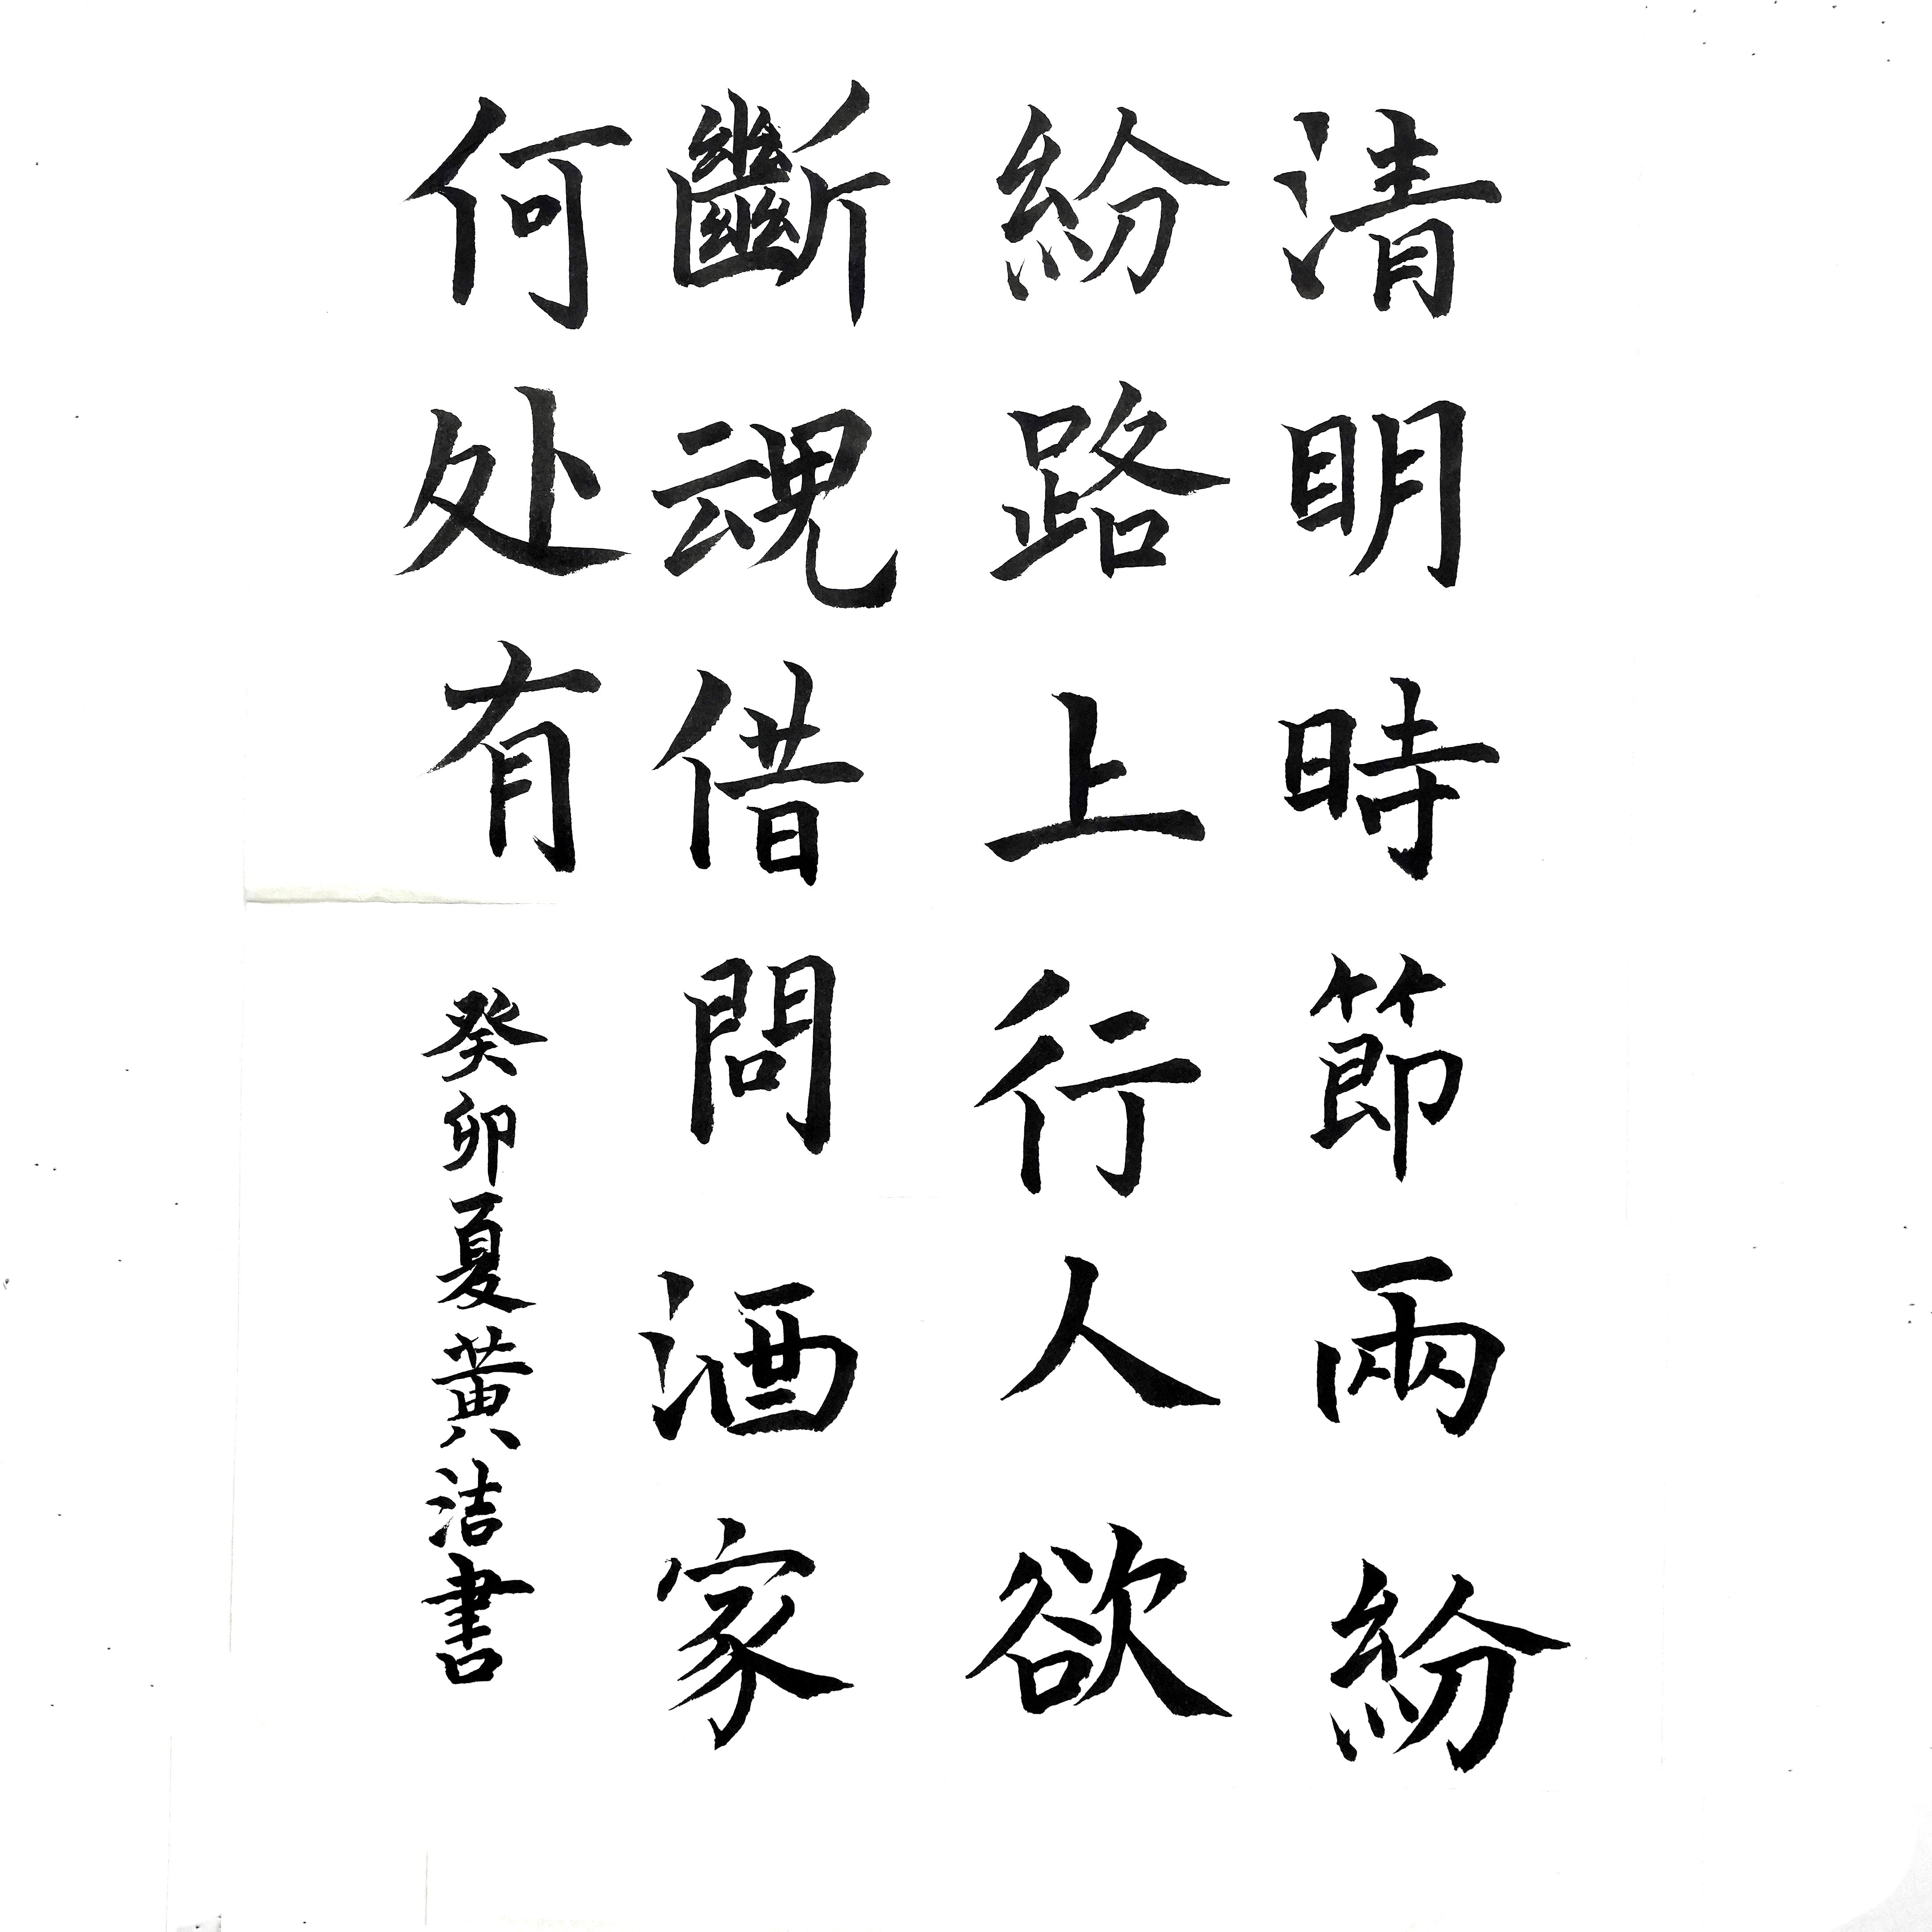 清明時節雨紛
紛路上行人欲
斷魂借問酒家
何处有
癸卯夏黄洁書